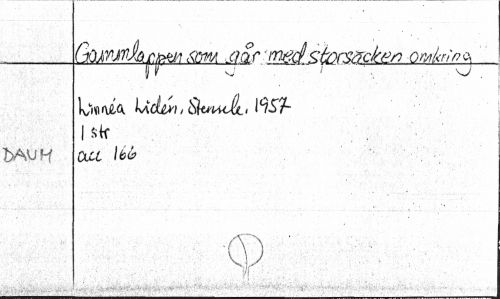 Gammlappen som går med storsäcken omkring
Linnéa Lidén, Stensele, 1957
1 str
DAUM acc 166